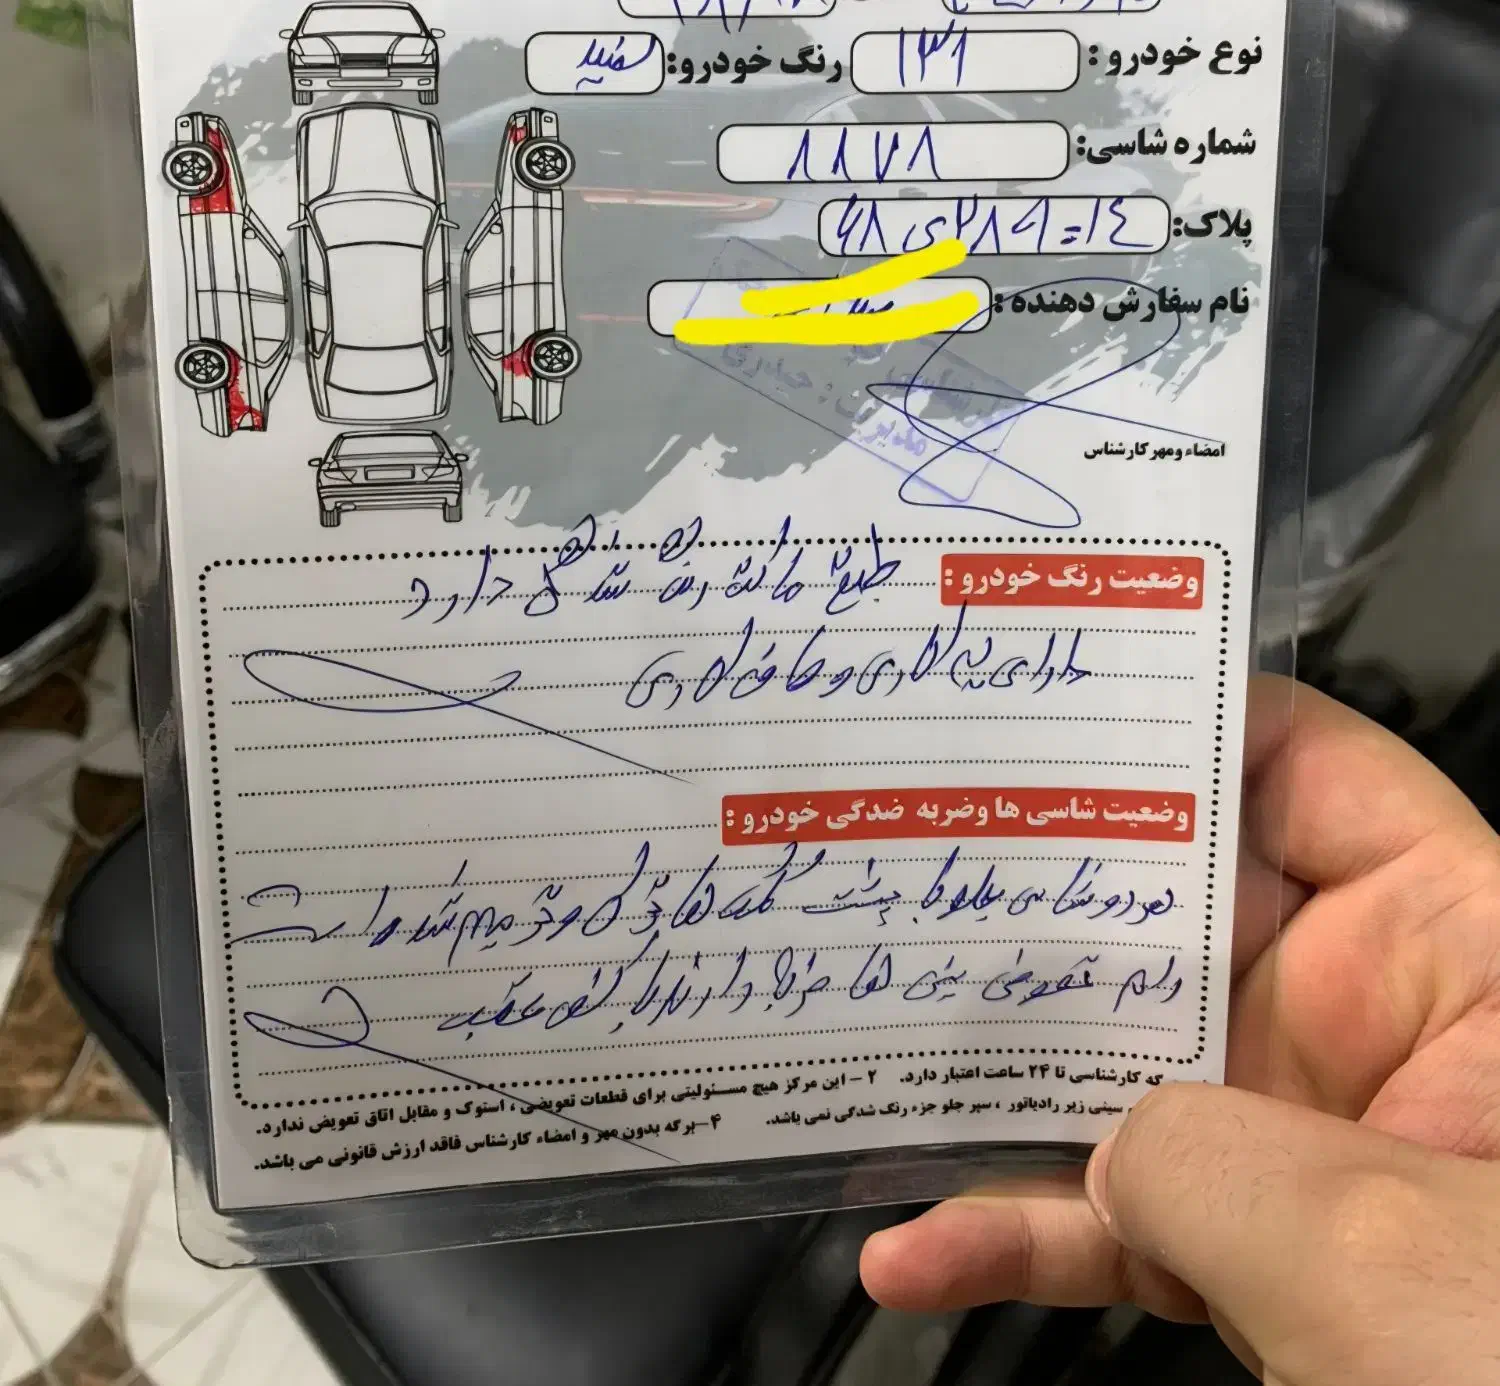 نوع خودرو : ۱۳۱ رنگ خودرو: سفید
شماره شاسی: ۸۸۷۸
پلاک:
نام سفارش دهنده :
مدیریت : حیدری
امضاء ومهر کارشناس
وضعیت رنگ خودرو : طبق ماکت رنگ شدگی دارد
دارای لیسه کاری و صافکاری
وضعیت شاسی ها وضربه ضدگی خودرو :
هر دو شاسی جلو با پشت گلگیرها ترک و ترمیم شده است
رام تعویض سینی ها ضربه دارند کف عقب
که کارشناسی تا ۲۴ ساعت اعتبار دارد. ۲ - این مرکز هیچ مسئولیتی برای قطعات تعویضی ، استوک و مقابل اتاق تعویض ندارد.
سینی زیر رادیاتور ، سپر جلو جزء رنگ شدگی نمی باشد. ۴-برگه بدون مهر و امضاء کارشناس فاقد ارزش قانونی می باشد.